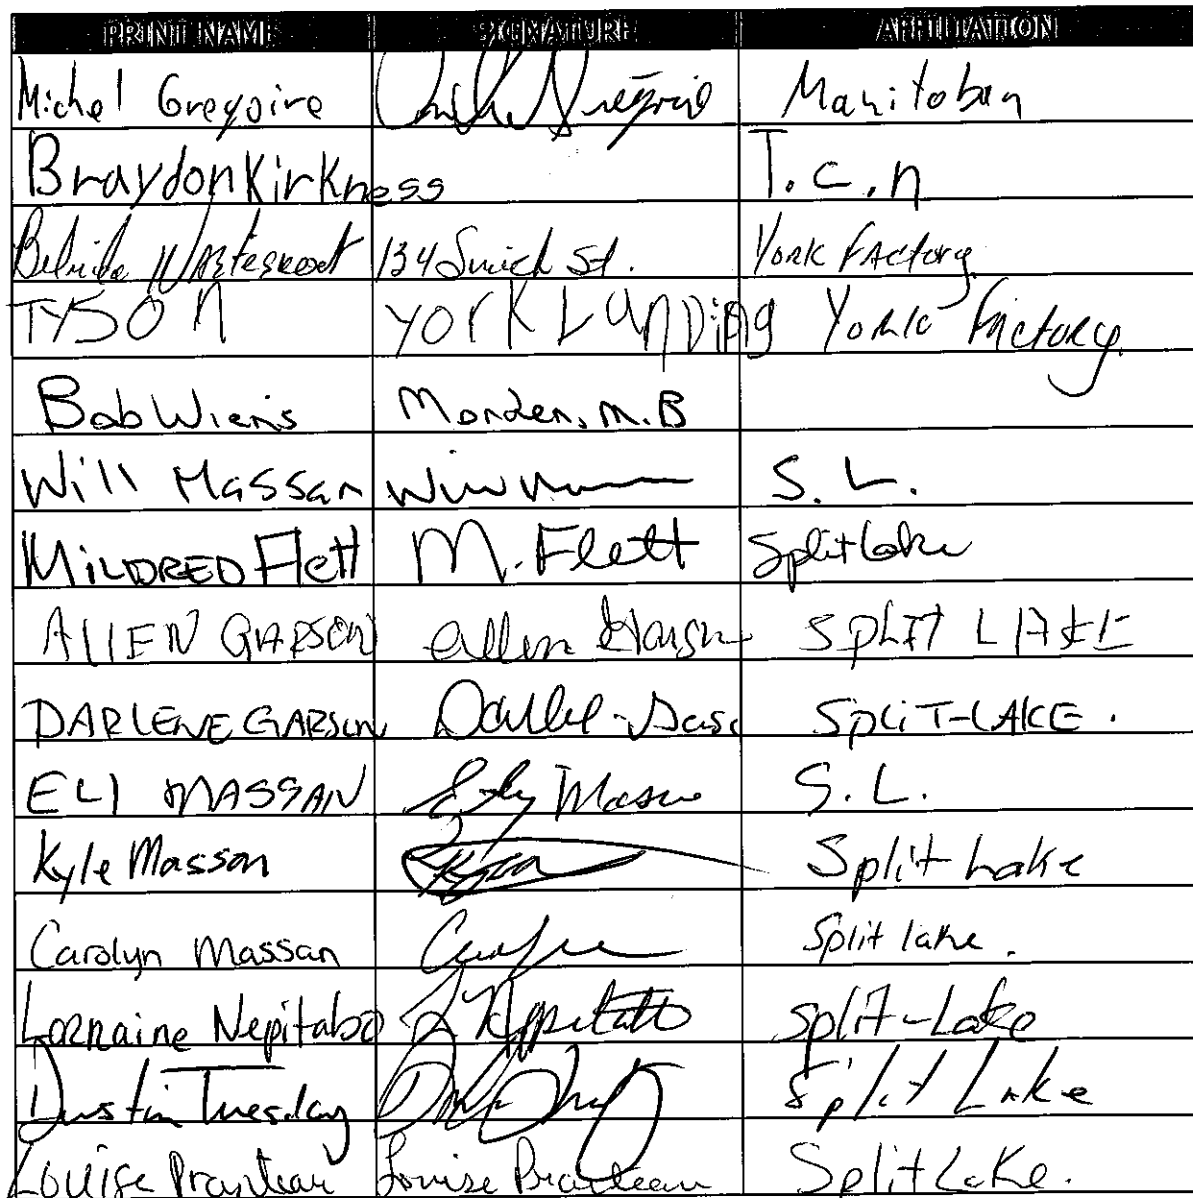 PRINT NAME SIGNATURE AFFILIATION
Michel Gregoire Manitoban
Braydon Kirkness T.C.n
134 St. York Factory
TYSON York LanDing York Factory
Bob Wiens Morden, M.B
Will Massan S. L.
MILDRED Flett M. Flett Splitlake
AllEN GARSON allen SPLIT LAKE
DARLENE GARSON SPLIT-LAKE.
ELI MASSAN S. L.
Kyle Massan Split Lake
Carolyn Massan Split lake.
Lorraine Nepitabo L Nepitabo Split-Lake
Dustin Tuesday Split Lake
Louise Pranteau Louise Pranteau Split Lake.